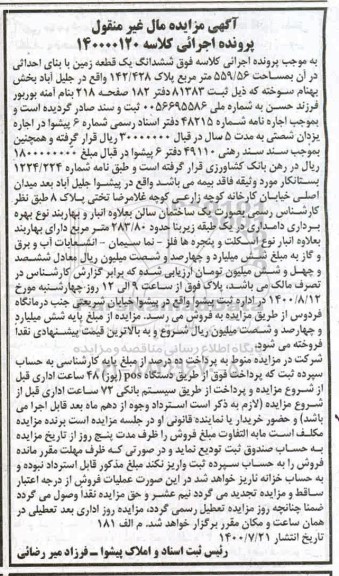 آگهی مزایده مال غیر منقول
پرونده اجرائی کلاسه ۱۴۰۰۰۰۱۲۰
به موجب پرونده اجرائی کلاسه فوق ششدانگ یک قطعه زمین با بنای احداثی
در آن بمساحت ۵۵۹/۵۶ متر مربع پلاک ۱۴۲/۴۲۸ واقع در جلیل آباد بخش
بهنام سوخته که ذیل ثبت ۸۱۳۸۳ دفتر ۱۸۲ صفحه ۲۱۸ بنام آمنه بوربور
فرزند حسن به شماره ملی ۰۰۵۶۶۹۵۵۸۶ ثبت و سند صادر گردیده است و
بموجب اجاره نامه شماره ۴۸۲۱۵ دفتر اسناد رسمی شماره ۶ پیشوا در اجاره
یزدان شصتی به مدت ۵ سال در قبال ۳۰۰۰۰۰۰۰ ریال قرار گرفته و همچنین
بموجب سند سند رهنی ۴۹۱۱۰ دفتر ۶ پیشوا در قبال مبلغ ۱۸۰۰۰۰۰۰۰۰
ریال در رهن بانک کشاورزی قرار گرفته است و طبق نامه شماره ۱۲۲۴/۲۲۴
بستانکار مورد وثیقه فاقد بیمه می باشد واقع در پیشوا جلیل آباد بعد میدان
اصلی خیابان کارخانه کوچه زارعی کوچه غلامرضا تختی پلاک ۸ طبق نظر
کارشناس رسمی بصورت یک ساختمان سالن بعلاوه انبار و بهاربند نوع بهره
برداری دامداری در یک طبقه زیربنا حدود ۲۸۳/۸۰ متر مربع دارای بهاربند
بعلاوه انبار نوع اسکلت و پنجره ها فلز - نما سیمان - انشعابات آب و برق
و گاز به مبلغ شش میلیارد و چهارصد و شصت میلیون ریال معادل ششصد
و چهل و شش میلیون تومان ارزیابی شده که برابر گزارش کارشناس در
تصرف مالک می باشد، پلاک فوق از ساعت ۹ الی ۱۲ روز چهارشنبه مورخ
۱۴۰۰/۸/۱۲ در اداره ثبت پیشوا واقع در پیشوا خیابان شریعتی جنب درمانگاه
فردوس از طریق مزایده به فروش می رسد. مزایده از مبلغ پایه شش میلیارد
و چهارصد و شصت میلیون ریال شروع و به بالاترین قیمت پیشنهادی نقدا
فروخته می شود.
شرکت در مزایده منوط به پرداخت ده درصد از مبلغ پایه کارشناسی به حساب
سپرده ثبت که پرداخت فوق از طریق دستگاه pos (پوز) ۴۸ ساعت اداری قبل
از شروع مزایده و پرداخت از طریق سیستم بانکی ۷۲ ساعت اداری قبل از
شروع مزایده (لازم به ذکر است استرداد وجوه از دهم ماه بعد قابل اجرا می
باشد) و حضور خریدار یا نماینده قانونی او در جلسه مزایده است برنده مزایده
مکلف است مابه التفاوت مبلغ فروش را ظرف مدت پنج روز از تاریخ مزایده
به حساب صندوق ثبت تودیع نماید و در صورتی که ظرف مهلت مقرر مانده
فروش را به حساب سپرده ثبت واریز نکند مبلغ مذکور قابل استرداد نبوده و
به حساب خزانه واریز خواهد شد. در این صورت عملیات فروش از درجه اعتبار
ساقط و مزایده تجدید می گردد نیم عشر و حق مزایده نقدا وصول می گردد
ضمنا چنانچه روز مزایده تعطیل رسمی گردد، مزایده روز اداری بعد تعطیلی در
همان ساعت و مکان مقرر برگزار خواهد شد. م الف ۱۸۱
تاریخ انتشار ۱۴۰۰/۷/۲۱
رئیس ثبت اسناد و املاک پیشوا – فرزاد میر رضائی